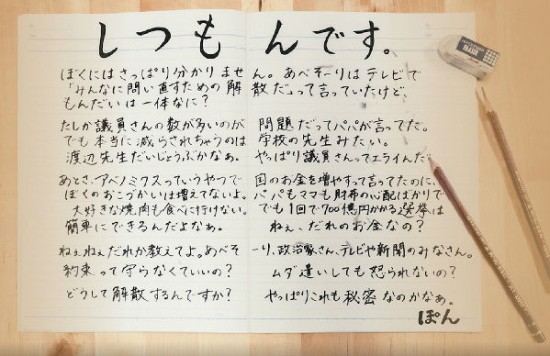 しつもんです。
ぼくにはさっぱり分かりません。あべそーりはテレビで
「みんなに問い直すための解散だ」って言っていたけど、
もんだいは一体なに?
たしか議員さんの数が多いのが問題だってパパが言ってた。
でも本当に減らされちゃうのは学校の先生みたい。
渡辺先生だいじょうぶかなぁ。やっぱり議員さんってエライんだ。
あとさ、アベノミクスっていうやつで国のお金を増やすって言ってたのに、
ぼくのおこづかいは増えてないよ。パパもママも財布の心配ばかりで
大好きな焼肉も食べに行けない。でも1回で700億円かかる選挙は
簡単にできるんだよなぁ。ねぇ、だれのお金なの?
ねぇねぇだれか教えてよ。あべそーり、政治家さん、テレビや新聞のみなさん。
約束って守らなくていいの?ムダ遣いしても怒られないの?
どうして解散するんですか?やっぱりこれも秘密なのかなぁ。
ぽん